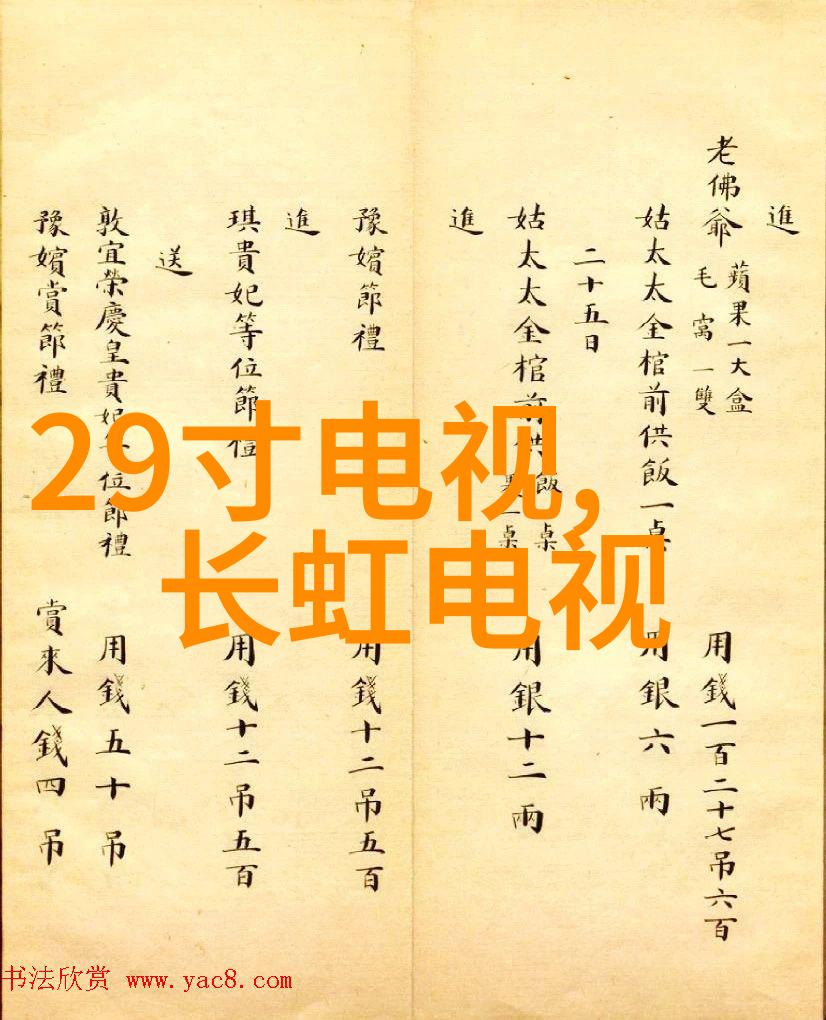 進
老佛爺 蘋果一大盒 毛窩一雙 用錢一百二十七吊六百
姑太太金棺前供飯一桌 用銀六兩
二十五日
姑太太金棺前供飯一桌 果一桌 用銀十二兩
進
豫嬪節禮 用錢十二吊五百
進
琪貴妃等位節禮 用錢十二吊五百
送
敦宜榮慶皇貴妃等位節禮 用錢五十吊
豫嬪賞節禮 賞來人錢四吊
29寸电视,
长虹电视
书法欣赏 www.yac8.com